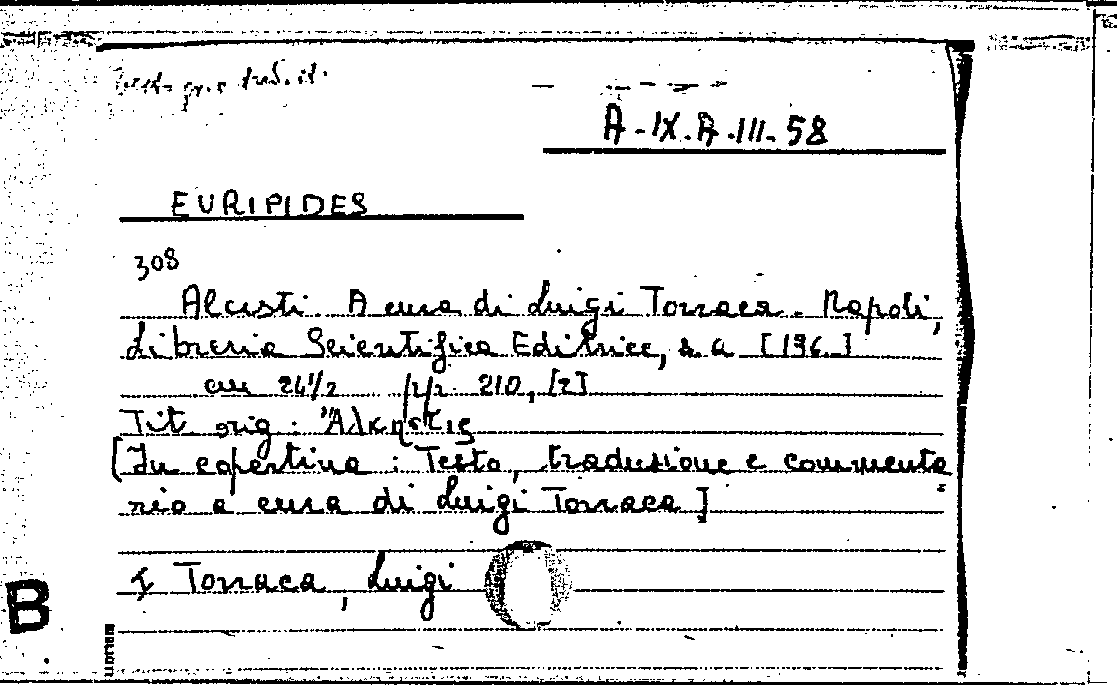 Testo gr. e trad. it.
A-IX.A.III-58
EURIPIDES
308
Alcesti. A cura di Luigi Torraca. Napoli,
Libreria Scientifica Editrice, s.a [196.]
cm 24 1/2 pp. 210, [2]
Tit orig: "Αλκηστις
[In copertina: Testo, traduzione e commenta
rio a cura di Luigi Torraca]
I Torraca, Luigi
B